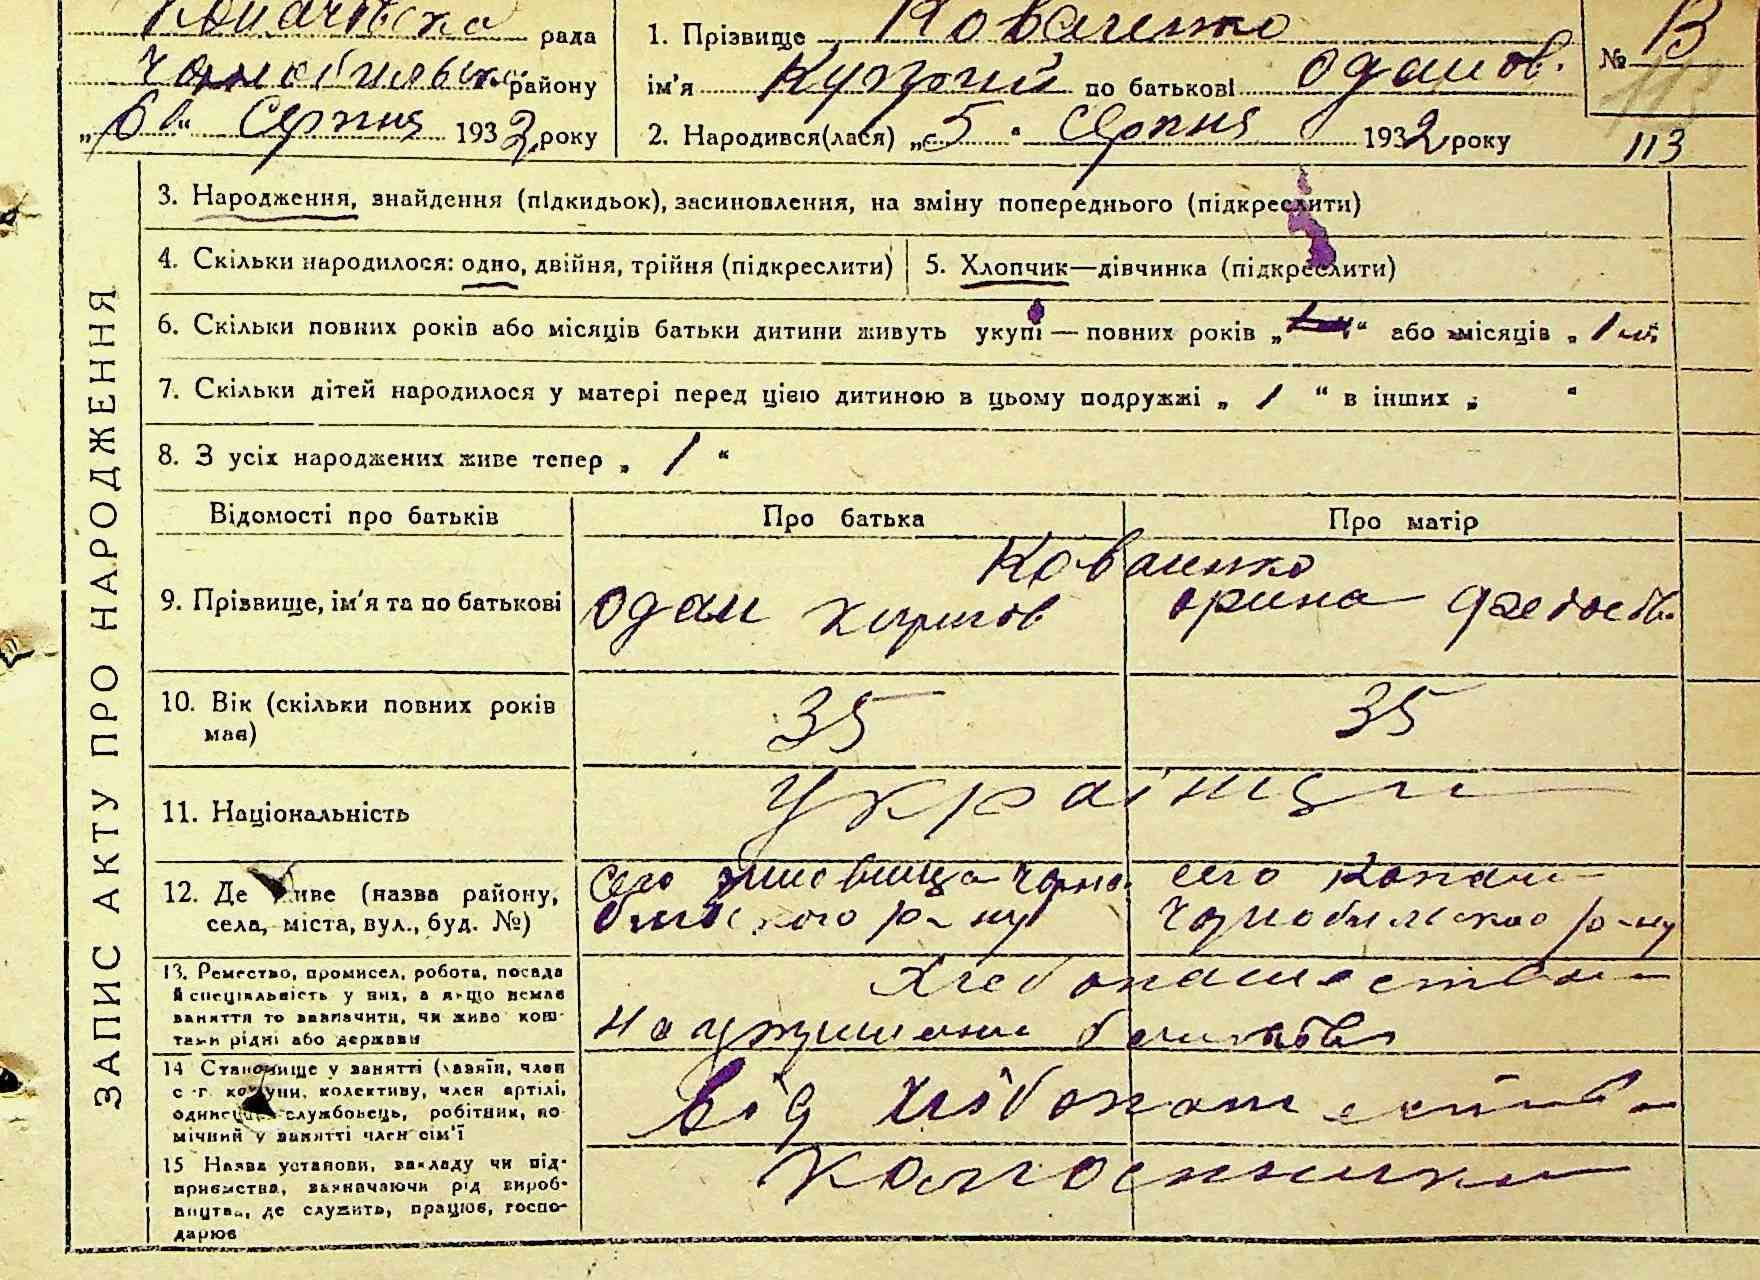 Копачівська рада
Чорнобильськ. району
„6“ Серпня 1932 року
1. Прізвище Коваленко
ім'я по батькові Одамов.
2. Народився(лася) „5“ Серпня 1932 року
№ В
113
113
ЗАПИС АКТУ ПРО НАРОДЖЕННЯ
3. Народження, знайдення (підкидьок), засиновлення, на зміну попереднього (підкреслити)
4. Скільки народилося: одно, двійня, трійня (підкреслити)
5. Хлопчик—дівчинка (підкреслити)
6. Скільки повних років або місяців батьки дитини живуть укупі — повних років „ “ або місяців „ 1
7. Скільки дітей народилося у матері перед цією дитиною в цьому подружжі „ 1 “ в інших „ “
8. З усіх народжених живе тепер „ 1 “
Відомості про батьків
Про батька
Про матір
9. Прізвище, ім'я та по батькові
Коваленко
Одам
орина
10. Вік (скільки повних років
має)
35
35
11. Національність
Українці
12. Де живе (назва району,
села, міста, вул., буд. №)
село Чорно
бильського р-ну
село Копачі
Чорнобильского р-ну
13. Ремество, промисел, робота, посада
й спеціяльність у них, а якщо немає
заняття то зазначити, чи живе кош-
тами рідні або держави
Хлебопашество
14 Становище у занятті (хазяїн, член
с.-г. комуни, колективу, член артілі,
одинець, службовець, робітник, по-
мічний у занятті член сім'ї
Від хлібопашества
15 Назва установи, закладу чи під-
приємства, зазначаючи рід вироб-
ництва, де служить, працює, госпо-
дарює
Колгоспники